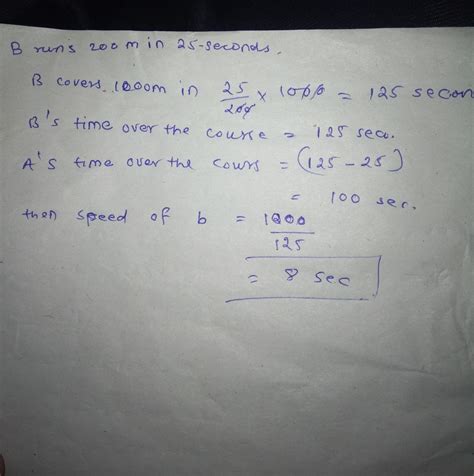 B runs 200 m in 25-seconds.
B covers 1000m in 25/200 × 1000 = 125 secon
B's time over the course = 125 sec.
A's time over the cours = (125 - 25)
= 100 sec.
then speed of b = 1000/125
= 8 sec